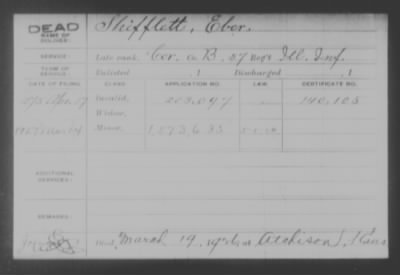 DEAD
NAME OF SOLDIER:
Shifflett, Eber.
SERVICE:
Late rank, Cor. Co. B, 57 Reg't Ill. Inf.
TERM OF SERVICE:
Enlisted , 1 Discharged , 1
DATE OF FILING. CLASS. APPLICATION NO. LAW. CERTIFICATE NO.
Invalid, 140,105
Widow,
Minor,
ADDITIONAL SERVICES:
REMARKS:
Died March 19, at Atchison, Kans